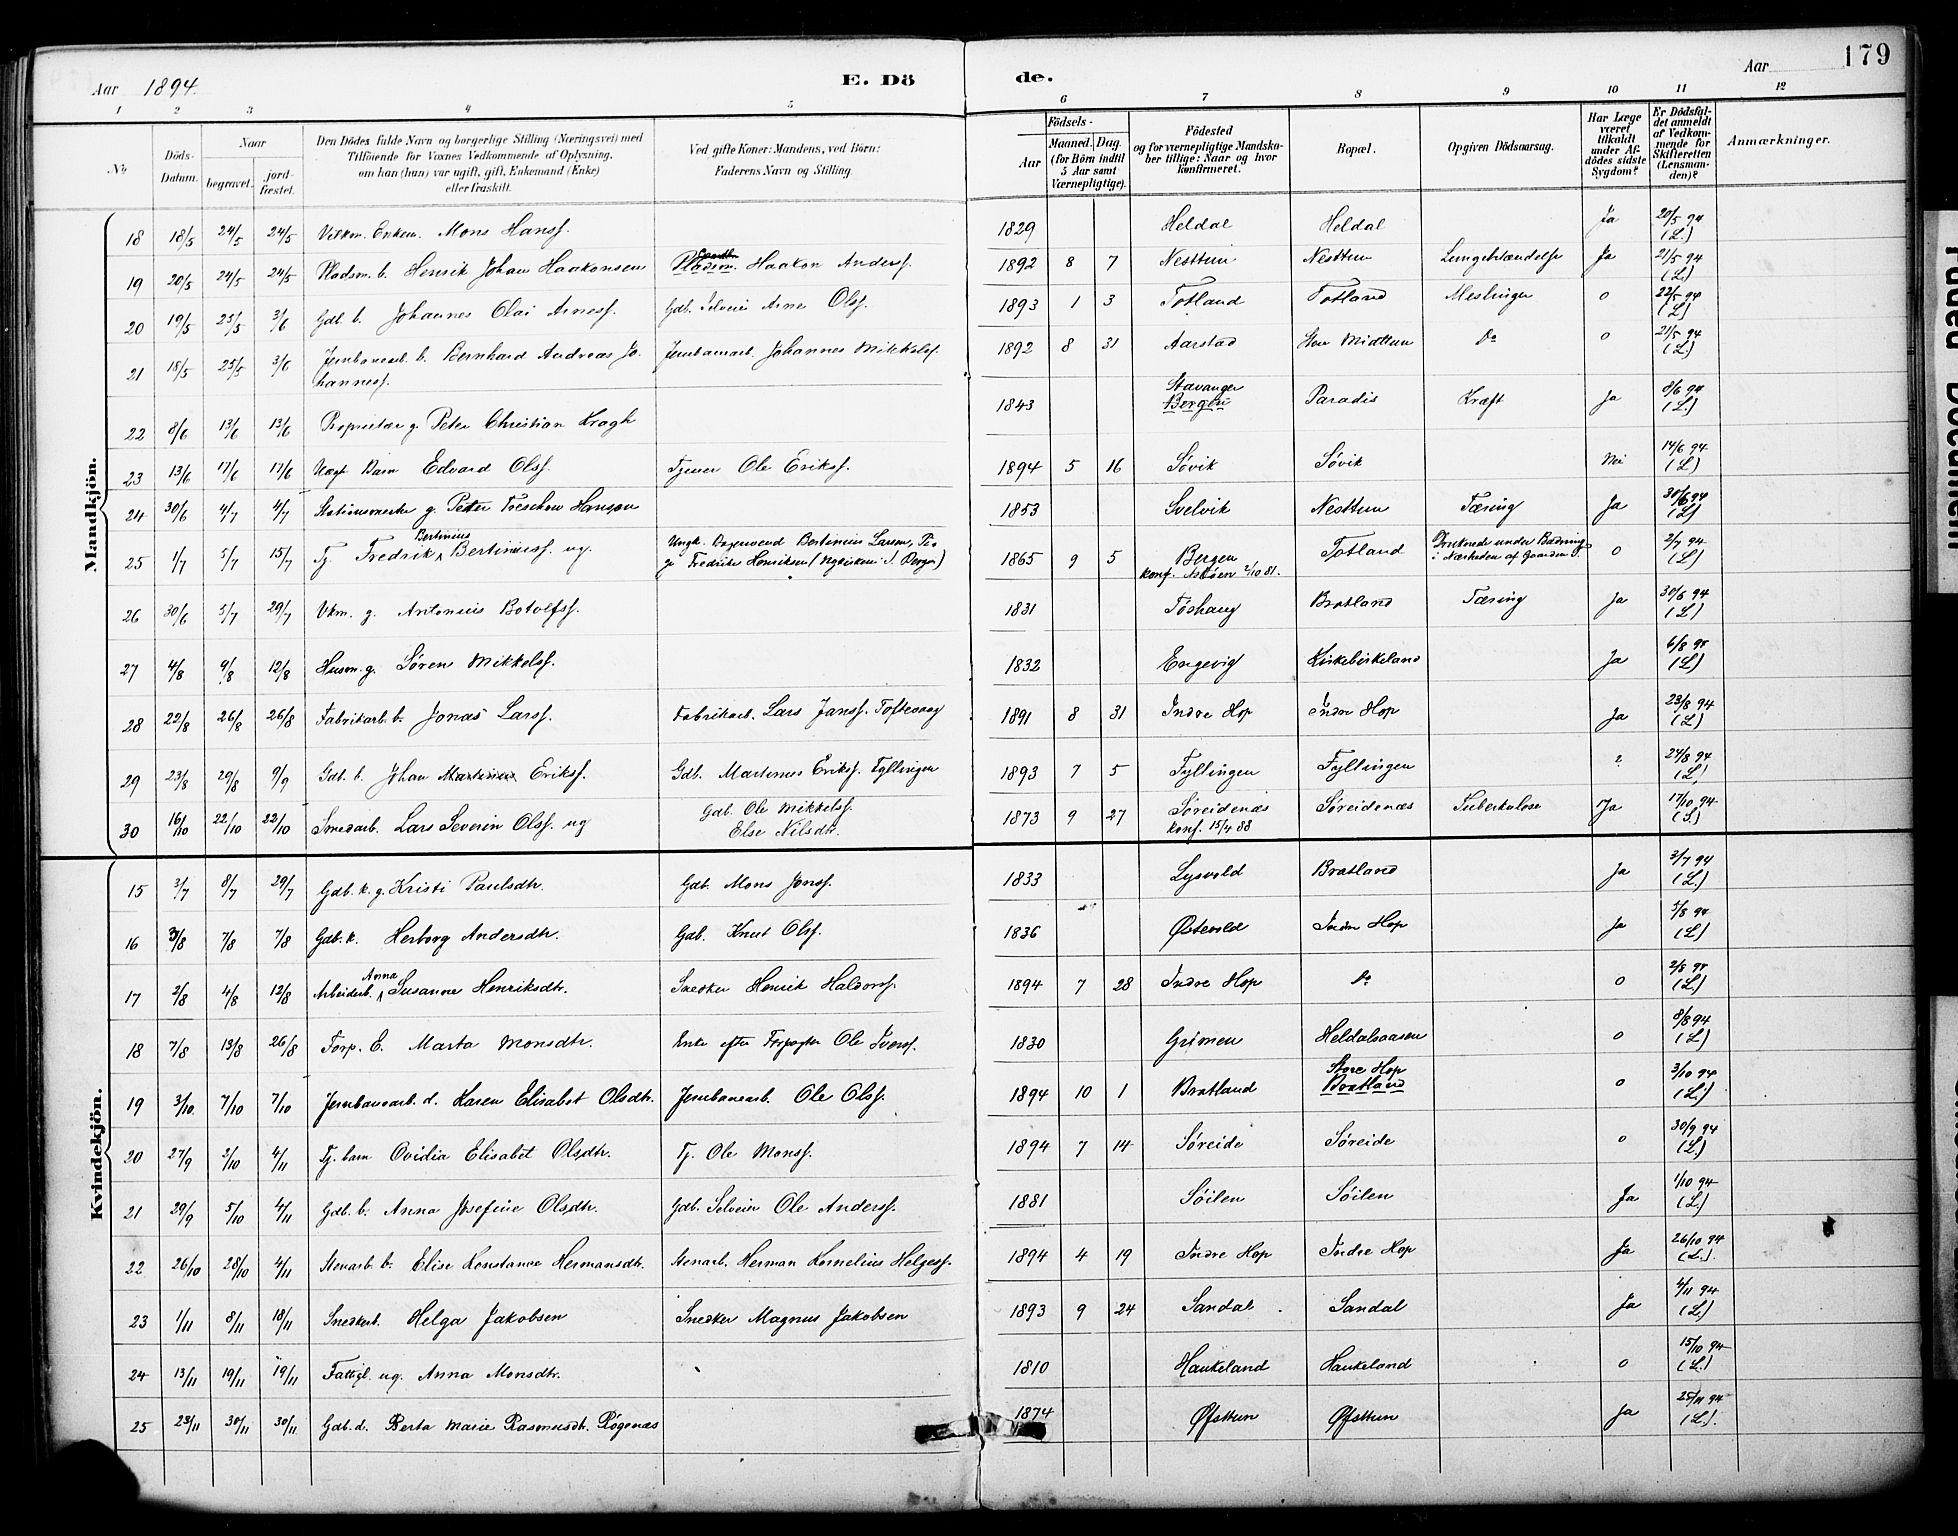 179
Aar 1894. E. Dö de. Aar
1 2 3 4 5 6 7 8 9 10 11 12
No
Döds-Datum.
Naar
begravet.
jord-fæstet.
Den Dödes fulde Navn og borgerlige Stilling (Næringsvei) med
Tilföiende for Voxnes Vedkommende af Oplysning,
om han (hun) var ugift, gift, Enkemand (Enke)
eller fraskilt.
Ved gifte Koner: Mandens, ved Börn:
Faderens Navn og Stilling.
Födsels-
Aar
Maaned. Dag.
(for Börn indtil
5 Aar samt
Værnepligtige).
Födested
og for værnepligtige Mandska-
ber tillige: Naar og hvor
konfirmeret.
Bopæl.
Opgiven Dödsaarsag.
Har Læge
været
tilkaldt
under Af-
dödes sidste
Sygdom?
Er Dödsfal-
det anmeldt
af Vedkom-
mende for
Skifteretten
(Lensman-
den)?
Anmærkninger.
Mandkjön.
18 18/5 24/5 24/5 Mons Hansf. 1829 Heldal Heldal Ja 20/5 94 (L.)
19 20/5 24/5 24/5 Pladsm. b. Henrik Johan Haakonsen Pladsm. Haakon Andersf. 1892 8 7 Nesttun Nesttun Lungebetændelse Ja 21/5 94 (L.)
20 19/5 25/5 3/6 Gdb. b. Johannes Olai Arnesf. Gdb. Selveier Arne Olsf. 1893 1 3 Totland Totland Meslinger 0 22/5 94 (L)
21 18/5 25/5 3/6 Jernbanearb. b. Bernhard Andreas Jo- Jernbanearb. Johannes Mikkelsf. 1892 8 31 Aarstad Midttun Do 0 21/5 94 (L.)
hannesf.
22 8/6 13/6 13/6 Proprietær g. Peter Christian Kragh 1843 Stavanger Bergen Paradis Kræft Ja 8/6 94 (L.)
23 13/6 17/6 17/6 Uægt. Barn Edvard Olsf. Tjener Ole Eriksf. 1894 5 16 Søvik Søvik Nei 14/6 94 (L)
24 30/6 4/7 4/7 Stationsmester g. Peter Treschow Hansen 1853 Svelvik Nesttun Tæring Ja 30/6 94 (L)
25 1/7 5/7 15/7 Tj. Fredrik Bertinius Bertiniusf. ug. Ungk. Bertinius Larsen, Pi-
ge Fredrikke Henriksen ( i Bergen) 1865 9 5 Bergen Totland Druknede under Badning 0 2/7 94 (L)
konf. Askøen 2/10 81. i Nærheden af Gaarden
26 30/6 5/7 29/7 Vkm. g. Antonius Botolfsf. 1831 Tøshaug Bratland Tæring Ja 30/6 94 (L)
27 4/8 9/8 12/8 Husm. g. Søren Mikkelsf. 1832 Engevig Kirkebirkeland Ja 6/8 94 (L)
28 22/8 26/8 26/8 Fabrikarb. b. Jonas Larsf. Fabrikarb. Lars Jansf. Toftevaag 1891 8 31 Indre Hop Indre Hop Ja 23/8 94 (L)
29 23/8 29/8 9/9 Gdb. b. Johan Martinius Eriksf. Gdb. Martines Eriksf. Fyllingen 1893 7 5 Fyllingen Fyllingen ? 24/8 94 (L)
30 16/10 22/10 22/10 Smedarb. Lars Severin Olsf. ug Gdb. Ole Mikkelsf. 1873 9 27 Søreidenæs Søreidenæs Tuberkulose Ja 17/10 94 (L)
Else Nilsdtr. konf. 15/4 88
Kvindekjön.
15 3/7 8/7 29/7 Gdb. k. g. Kristi Paulsdtr. Gdb. Mons Jonsf. 1833 Lysvold Bratland Ja 3/7 94 (L)
16 3/8 7/8 7/8 Gdb. k. Herborg Andersdtr. Gdb. Knut Olsf. 1836 Østevold Indre Hop Ja 5/8 94 (L)
17 2/8 4/8 12/8 Arbeiderb. Anna Susanne Henriksdtr. Snedker Henrik Haldorsf. 1894 7 28 Indre Hop Do 0 2/8 94 (L)
18 7/8 13/8 26/8 Forp. E. Marta Monsdtr. Enke efter Forpagter Ole Iversf. 1830 Grimen Heldalsaasen 0 8/8 94 (L)
19 3/10 7/10 7/10 Jernbanearb. d. Karen Elisabet Olsdtr. Jernbanearb. Ole Olsf. 1894 10 1 Bratland Store Hop Bratland 0 3/10 94 (L.)
20 27/9 2/10 4/11 Tj. barn Ovidia Elisabet Olsdtr. Tj. Ole Monsf. 1894 7 14 Søreide Søreide 0 30/9 94 (L.)
21 29/9 5/10 4/11 Gdb. b. Anna Josefine Olsdtr. Gdb. Selveier Ole Andersf. 1881 Søilen Søilen Ja 1/10 94 (L)
22 26/10 28/10 4/11 Stenarb. b. Elise Konstanse Hermansdtr. Stenarb. Herman Kornelius Helgesf. 1894 4 19 Indre Hop Indre Hop Ja 26/10 94 (L.)
23 1/11 8/11 18/11 Snedkerb. Helga Jakobsen Snedker Magnus Jakobsen 1893 9 24 Sandal Sandal Ja 4/11 94 (L)
24 13/11 19/11 19/11 Fattigl. ug. Anna Monsdtr. 1810 Haukeland Haukeland 0 15/10 94 (L.)
25 23/11 30/11 30/11 Gdb. d. Berta Marie Rasmusdtr. Røgenæs 1874 Øfsttun Øfsttun Ja 25/11 94 (L.)